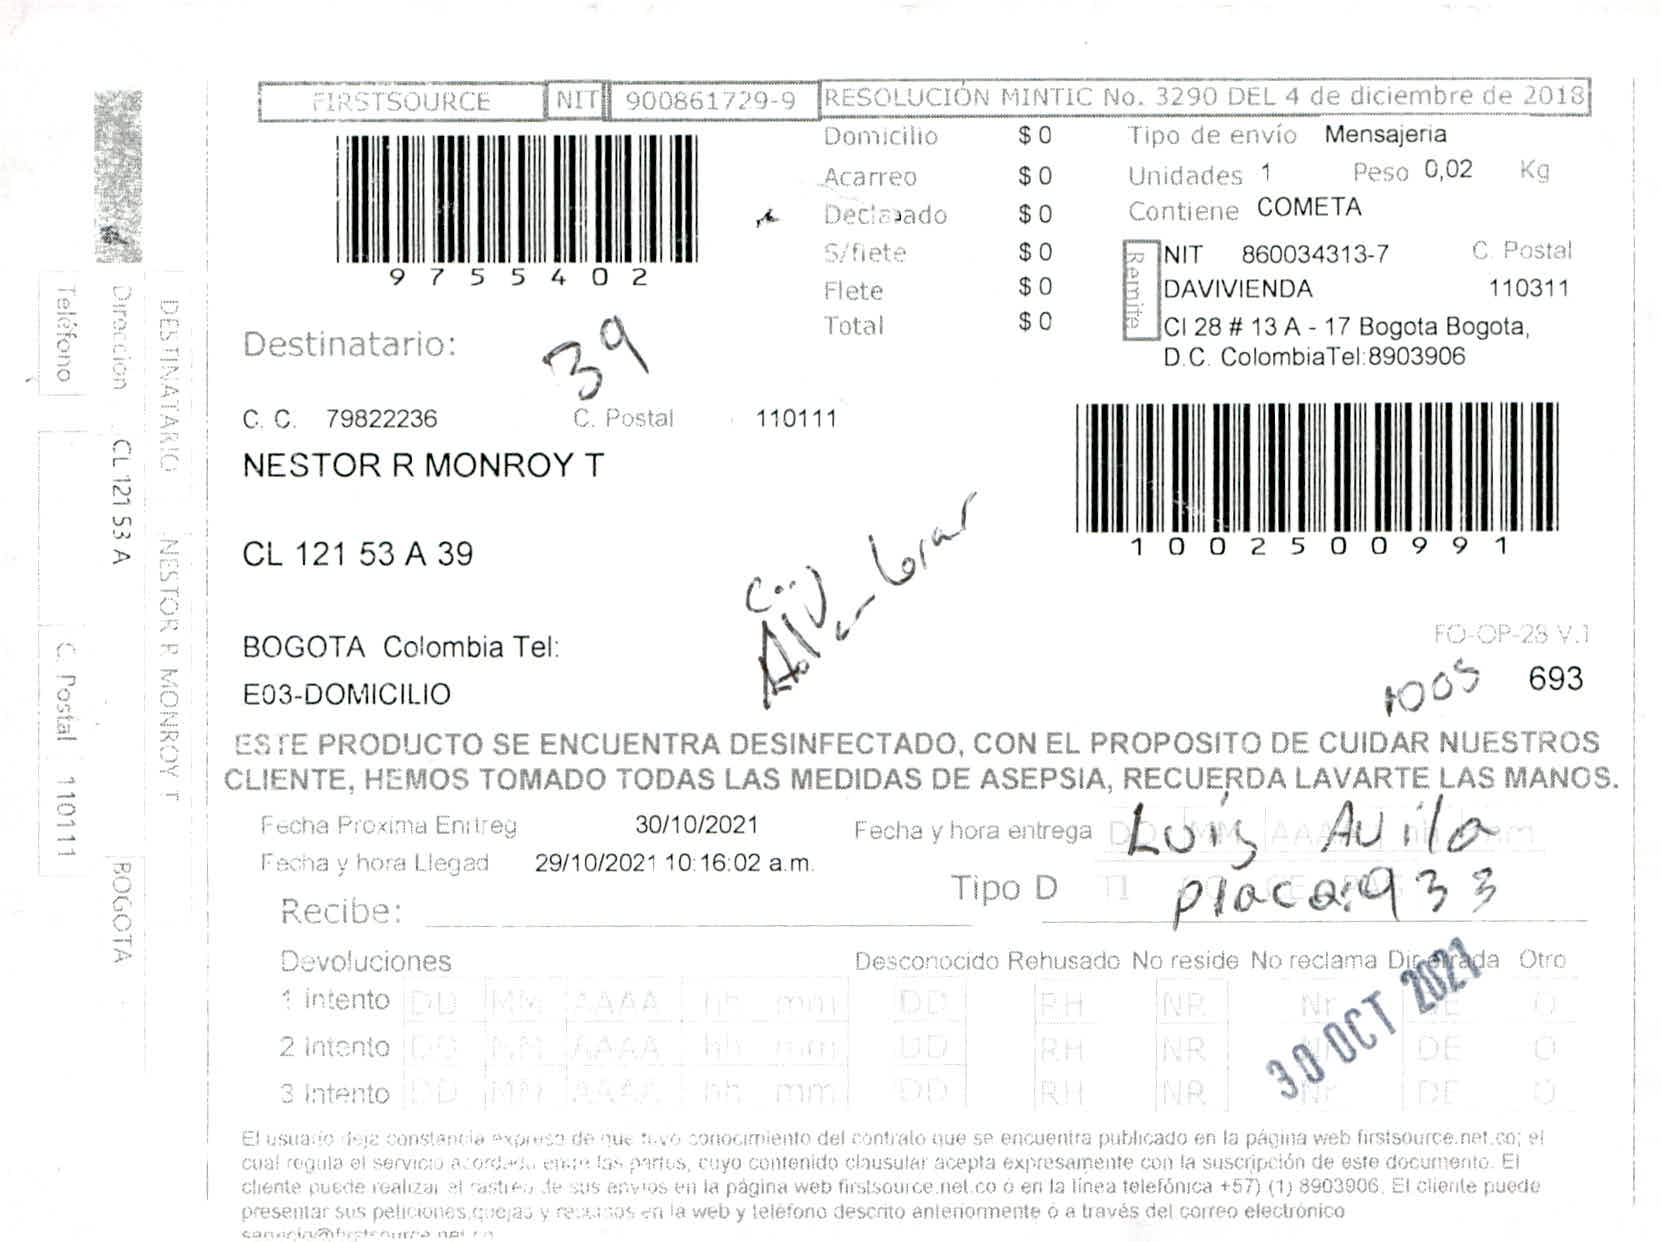 FIRSTSOURCE NIT 900861729-9 RESOLUCIÓN MINTIC No. 3290 DEL 4 de diciembre de 2018
9755402
Domicilio $ 0
Acarreo $ 0
Declarado $ 0
S/flete $ 0
Flete $ 0
Total $ 0
Tipo de envío Mensajeria
Unidades 1 Peso 0,02 Kg
Contiene COMETA
Remite
NIT 860034313-7 C. Postal
DAVIVIENDA 110311
Cl 28 # 13 A - 17 Bogota Bogota,
D.C. ColombiaTel:8903906
Destinatario:
39
C. C. 79822236 C. Postal 110111
NESTOR R MONROY T
1002500991
CL 121 53 A 39
BOGOTA Colombia Tel:
E03-DOMICILIO
FO-OP-28 V.1
1005 693
ESTE PRODUCTO SE ENCUENTRA DESINFECTADO, CON EL PROPOSITO DE CUIDAR NUESTROS
CLIENTE, HEMOS TOMADO TODAS LAS MEDIDAS DE ASEPSIA, RECUERDA LAVARTE LAS MANOS.
Fecha Proxima Enitreg 30/10/2021
Fecha y hora Llegad 29/10/2021 10:16:02 a.m.
Fecha y hora entrega DD MM AAAA hh mm
Luis Avila
Tipo D
placa:933
Recibe:
Devoluciones Desconocido Rehusado No reside No reclama Dir errada Otro
1 intento DD MM AAAA hh mm DD RH NR Nr DE O
2 intento DD MM AAAA hh mm DD RH NR Nr DE O
3 intento DD MM AAAA hh mm DD RH NR Nr DE O
30 OCT 2021
El usuario deja constancia expresa de que tuvo conocimiento del contrato que se encuentra publicado en la página web firstsource.net.co; el
cual regula el servicio acordado entre las partes, cuyo contenido clausular acepta expresamente con la suscripción de este documento. El
cliente puede realizar el rastreo de sus envios en la página web firstsource.net.co ó en la línea telefónica +57) (1) 8903906. El cliente puede
presentar sus peticiones,quejas y recursos en la web y teléfono descrito anteriormente o a través del correo electrónico
DESTINATARIO NESTOR R MONROY T
Dirección CL 121 53 A BOGOTA
Teléfono C. Postal 110111